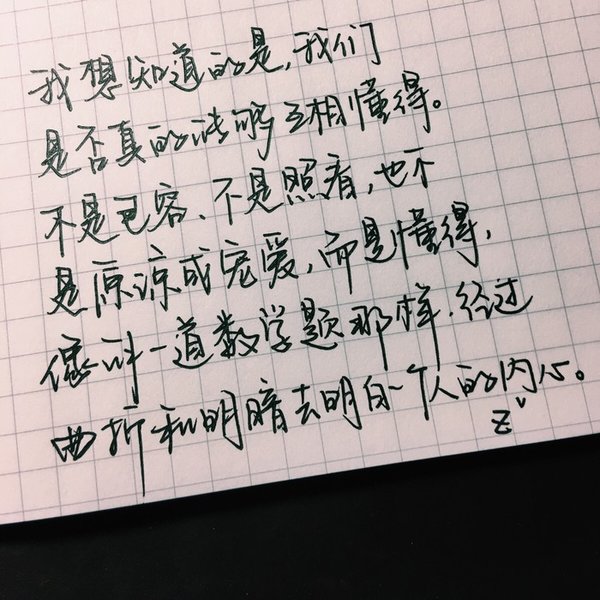 我想知道的是,我们
是否真的能够互相懂得。
不是包容、不是照看,也不
是原谅或宠爱,而是懂得,
像对一道数学题那样.经过
曲折和明暗去明白一个人的内心。
z